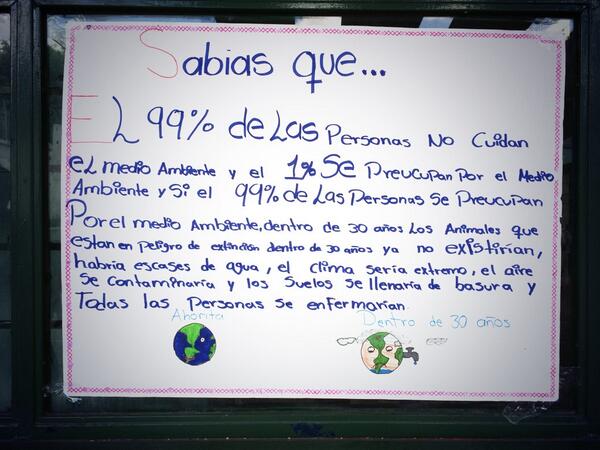 Sabias que...
EL 99% de Las Personas No Cuidan
el medio Ambiente y el 1% Se Preucupan Por el Medio
Ambiente y Si el 99% de Las Personas Se Preucupan
Por el medio Ambiente, dentro de 30 años Los Animales que
estan en Peligro de extinción dentro de 30 años ya no existirían,
habria escases de agua, el clima sería extremo, el aire
Se contaminaría y los Suelos Se llenaría de basura y
Todas las Personas se enfermarían.
Ahorita
Dentro de 30 años